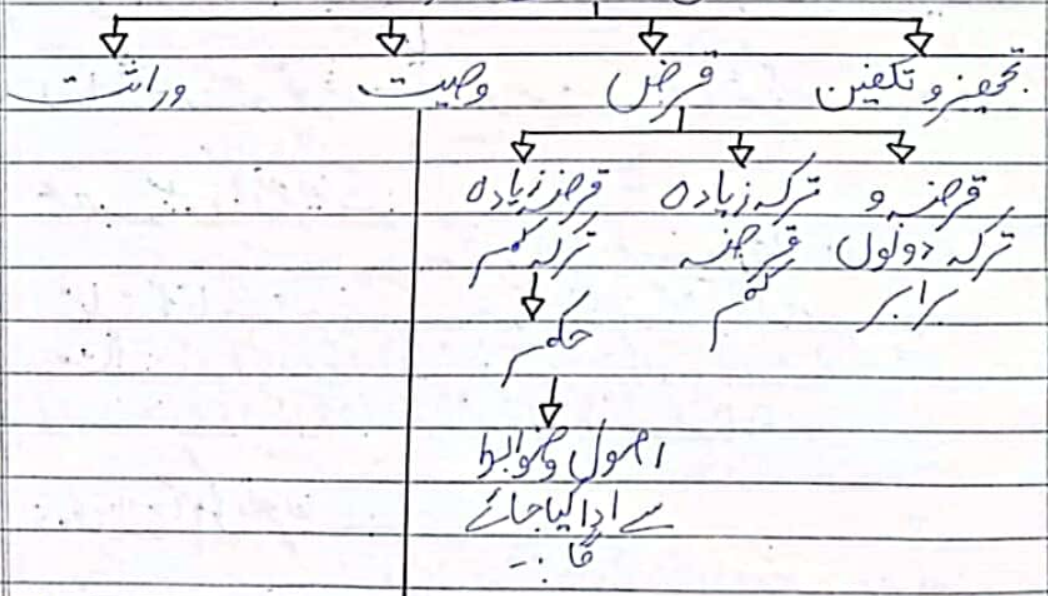 تجهیز و تکفین
قرض
وصیت
وراثت
قرضہ و
ترکہ دونوں
برابر
ترکہ زیادہ
قرضہ
کم
قرض زیادہ
ترکہ کم
حکم
اصول و ضوابط
سے ادا کیا جائے
گا ۔